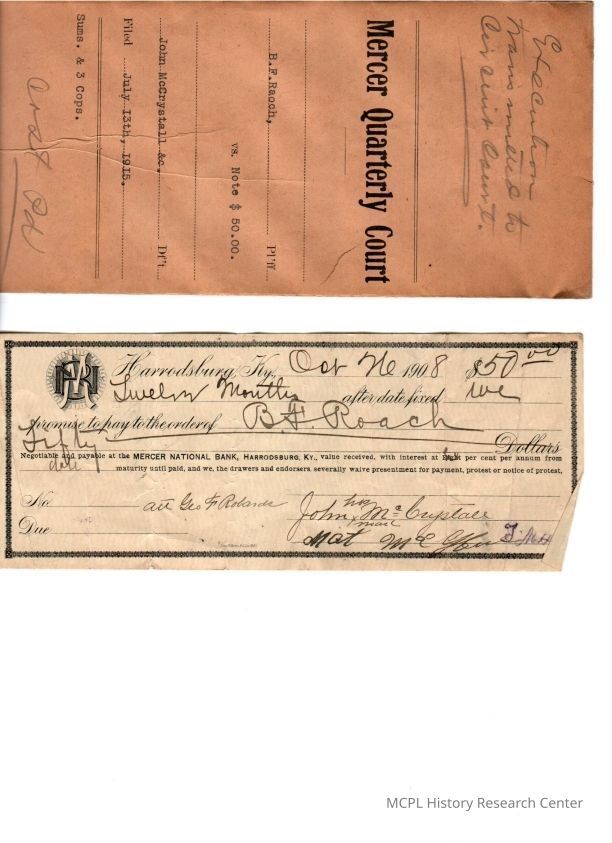 Execution
transmitted to
Circuit Court.
Mercer Quarterly Court
B.F.Raoch, Pl'ff
vs. Note $ 50.00.
John McCrystall &c. Df't
Filed July 13th, 1915.
Sums. & 3 Cops.
Harrodsburg, Ky., Oct 26 1908 $50 00
Twelve Months after date fixed we
promise to pay to the order of B.F. Roach
Fifty Dollars
Negotiable and payable at the MERCER NATIONAL BANK, HARRODSBURG, KY., value received, with interest at per cent per annum from
date maturity until paid, and we, the drawers and endorsers, severally waive presentment for payment, protest or notice of protest,
No att Geo F Robards
his
John x McCrystall
mark
Due
Mat
MCPL History Research Center